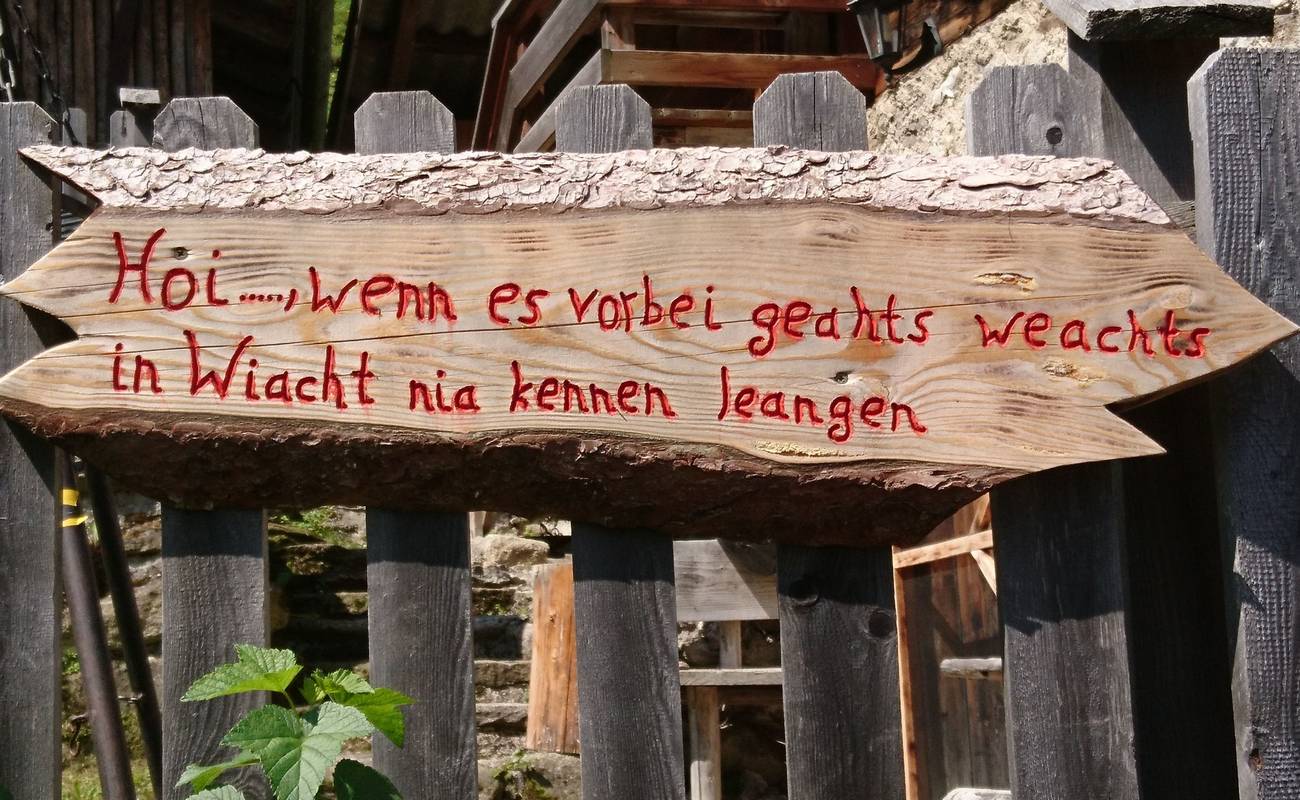 Hoi....., wenn es vorbei geahts weachts
in Wiacht nia kennen leangen